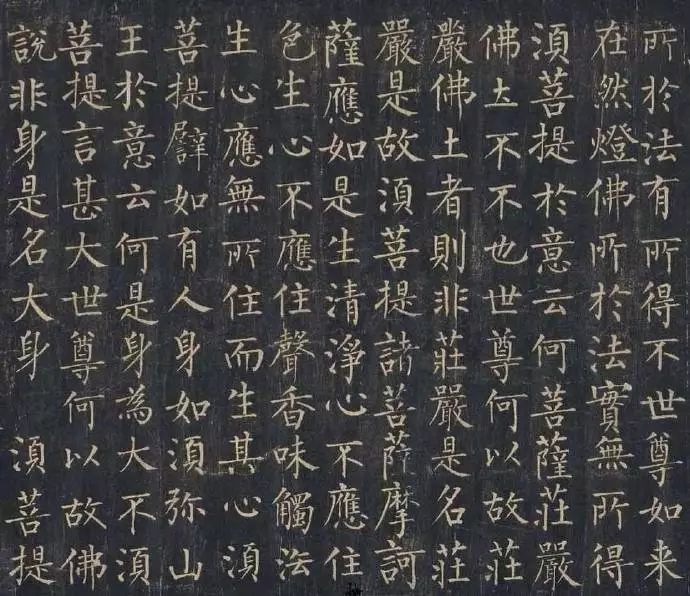 所於法有所得不世尊如来
在然燈佛所於法實無所得
須菩提於意云何菩薩莊嚴
佛土不不也世尊何以故莊
嚴佛土者則非莊嚴是名莊
嚴是故須菩提諸菩薩摩訶
薩應如是生清淨心不應住
色生心不應住聲香味觸法
生心應無所住而生其心須
菩提譬如有人身如須弥山
王於意云何是身為大不須
菩提言甚大世尊何以故佛
說非身是名大身 須菩提